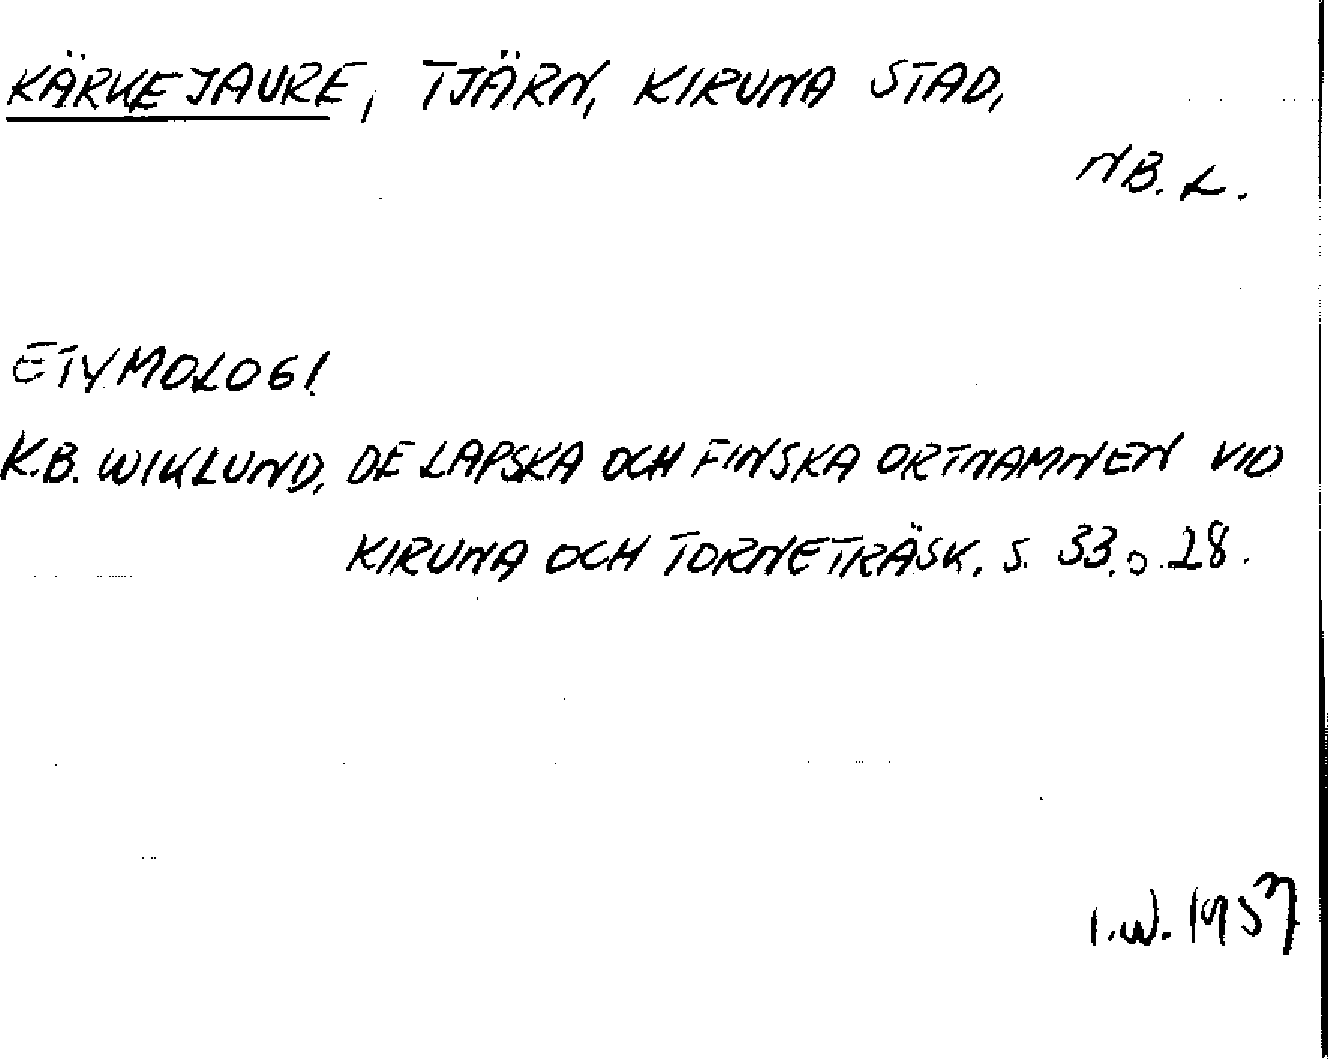 KÄRKEJAURE, TJÄRN, KIRUNA STAD,
NB. L.
ETYMOLOGI
K.B. WIKLUND, DE LAPSKA OCH FINSKA ORTNAMNEN VID
KIRUNA OCH TORNETRÄSK. S. 33. o. 28.
I.W. 1957